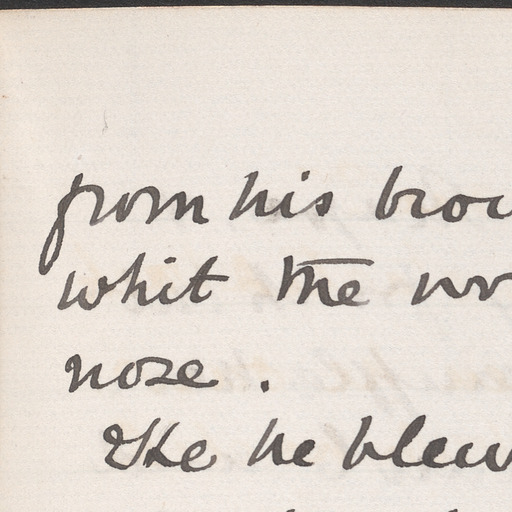 from his brou
whit the wr
nose .
The he blew